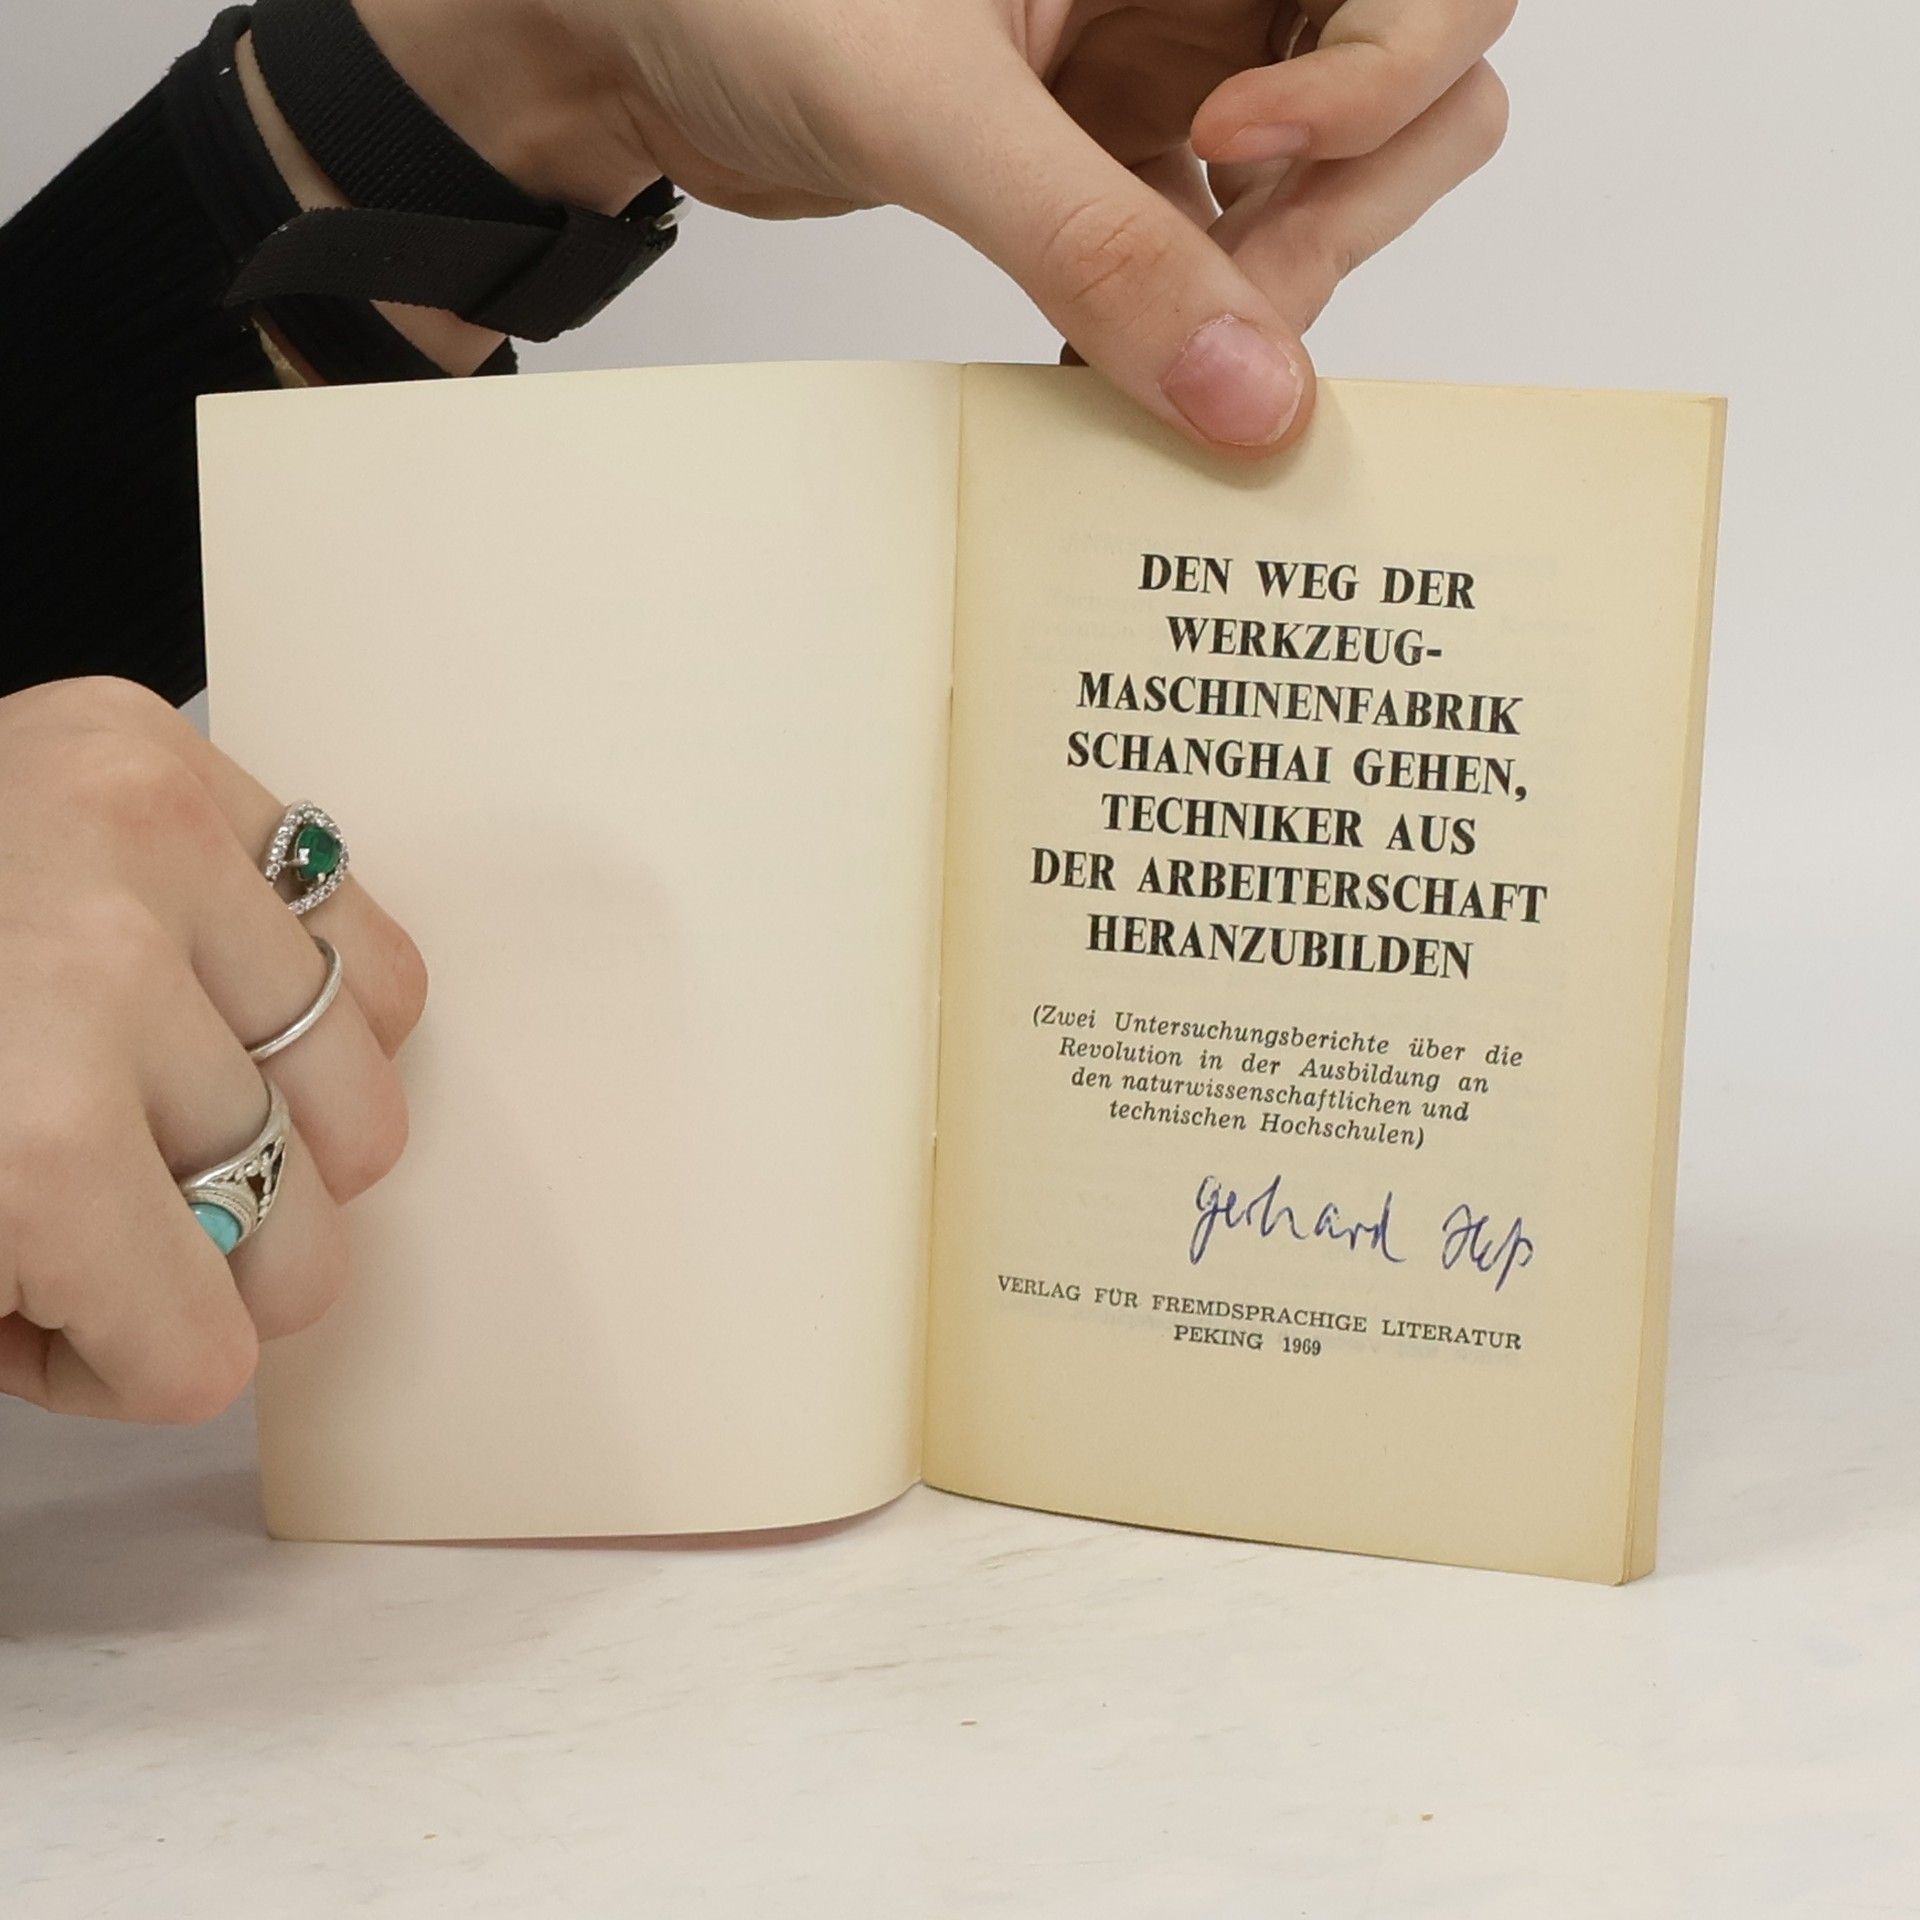 DEN WEG DER
WERKZEUG-
MASCHINENFABRIK
SCHANGHAI GEHEN,
TECHNIKER AUS
DER ARBEITERSCHAFT
HERANZUBILDEN
(Zwei Untersuchungsberichte über die
Revolution in der Ausbildung an
den naturwissenschaftlichen und
technischen Hochschulen)
Gerhard Heß
VERLAG FÜR FREMDSPRACHIGE LITERATUR
PEKING 1969